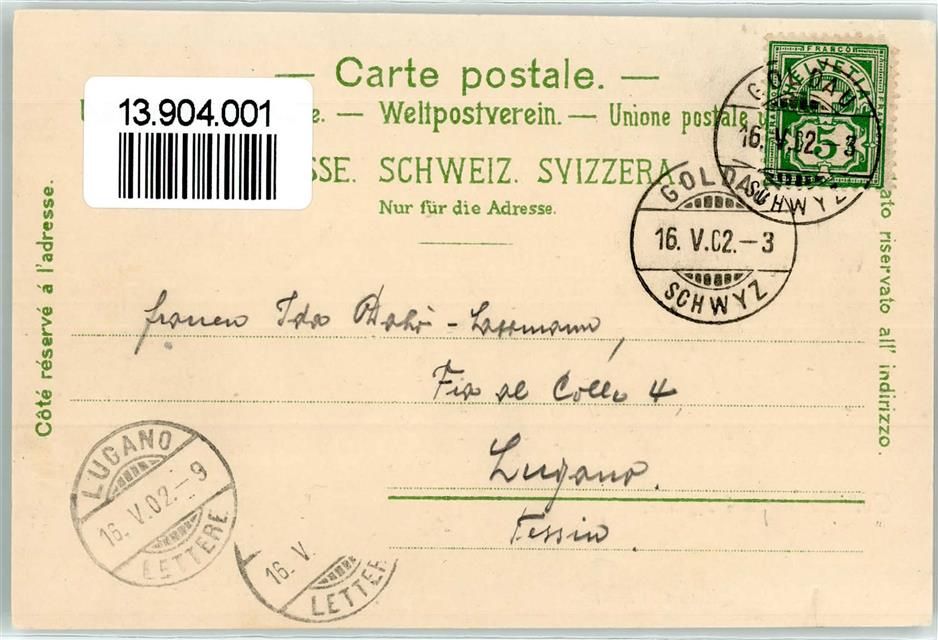 — Carte postale. —
13.904.001
— Weltpostverein. — Unione postale
SCHWEIZ. SVIZZERA
Nur für die Adresse.
Côté réservé à l'adresse.
riservato all' indirizzo.
FRANCO
HELVETIA
5
GOLDAU
16. V.02.-3
SCHWYZ
GOLDAU
16. V.02.-3
SCHWYZ
Ida
Fia al Colle 4
Lugano.
Tessin
LUGANO
16. V.02.-9
LETTERE
16. V.
LETTER